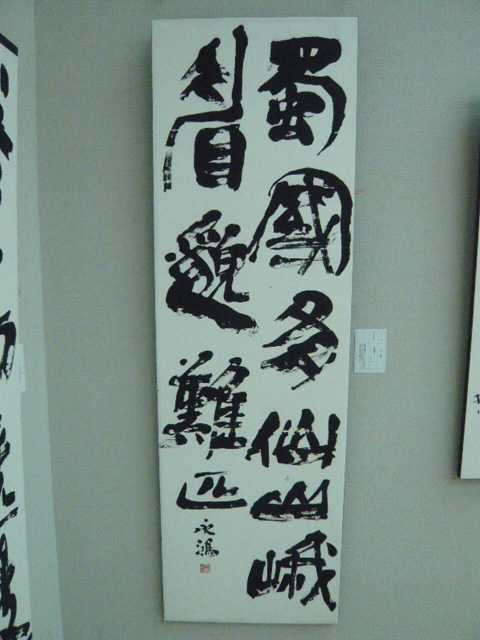 蜀國多仙山峨
眉邈難匹
永鴻